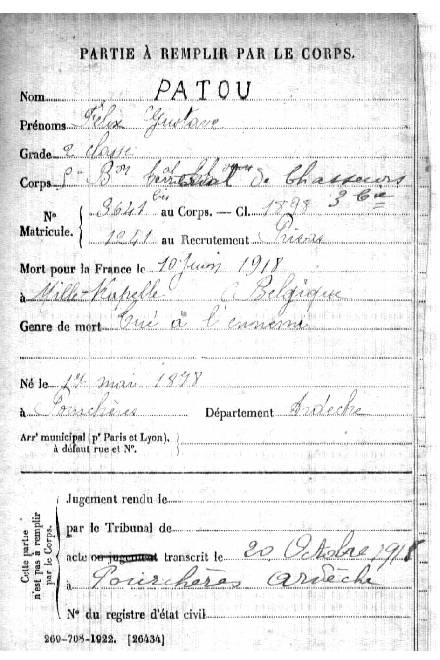 PARTIE À REMPLIR PAR LE CORPS.
Nom PATOU
Prénoms Félix Gustave
Grade 2e classe
Corps Bon de Chasseurs
3641 bis au Corps. — Cl. 1898 3 Cie
N°
Matricule.
1241 au Recrutement Privas
Mort pour la France le 10 Juin 1918
à Mille-Kapelle Belgique
Genre de mort Tué à l'ennemi
Né le 17 mai 1878
à Pourchères Département Ardèche
Arrt municipal (pr Paris et Lyon),
à défaut rue et N°.
Cette partie
n'est pas à remplir
par le Corps.
Jugement rendu le
par le Tribunal de
acte ou jugement transcrit le 20 Octobre 1918
à Pourchères Ardèche
N° du registre d'état civil
269-708-1922. [26434]